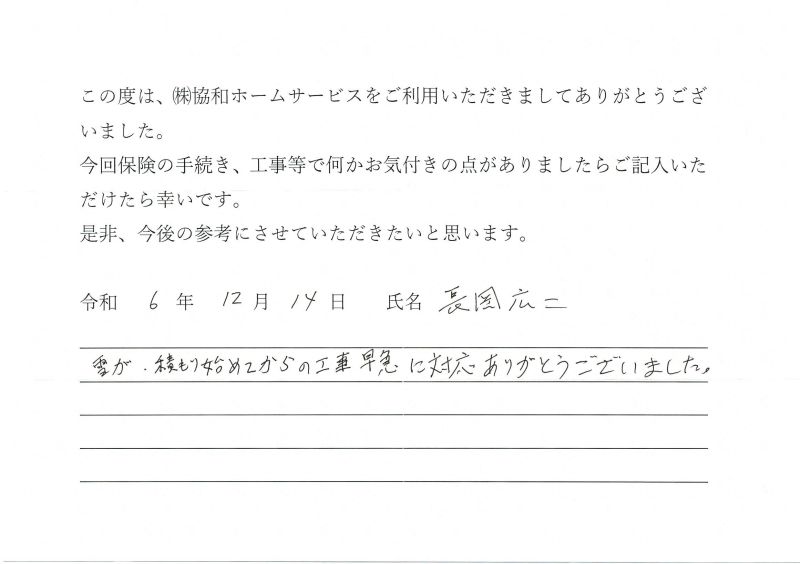 この度は、㈱協和ホームサービスをご利用いただきましてありがとうござ
いました。
今回保険の手続き、工事等で何かお気付きの点がありましたらご記入いた
だけたら幸いです。
是非、今後の参考にさせていただきたいと思います。
令和 6 年 12 月 14 日 氏名 長岡広二
雪が、積もり始めてからの工事早急に対応ありがとうございました。